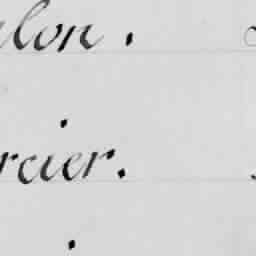 alon.
rcier.